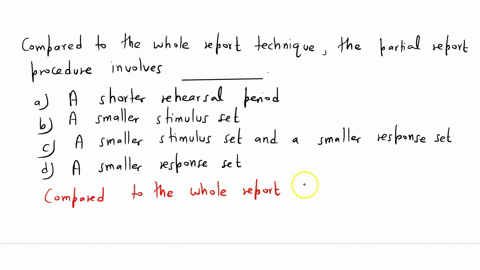 Compared to the whole report technique, the partial report
procedure involves ________.
a) A shorter rehearsal period
b) A smaller stimulus set
c) A smaller stimulus set and a smaller response set
d) A smaller response set
Compared to the whole report